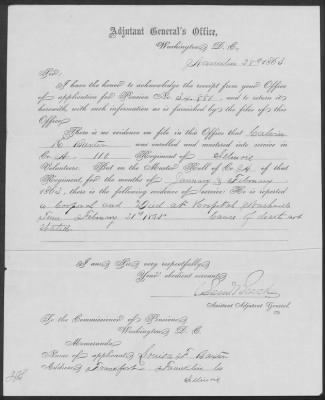 Adjutant General's Office,
Washington, D. C.
November 28th 1863.
Sir:
I have the honor to acknowledge the receipt from your Office
of application for Pension No. 34.881, and to return it
herewith, with such information as is furnished by the files of this
Office.
There is no evidence on file in this Office that Calvin
was enrolled and mustered into service in
Co. A, 110 Regiment of Illinois
Volunteers. But on the Muster Roll of Co. A, of that
Regiment, for the months of January & February
1863, there is the following evidence of service: He is reported
a Corporal and Died at Hospital Nashville
Tenn February 21st 1863 Cause of death not
stated
I am, Sir, very respectfully,
Your obedient servant,
Assistant Adjutant General.
To the Commissioner of Pensions,
Washington, D. C.
Memoranda:
Name of applicant, Louisa F.
Address, Frankfort Franklin Co
Illinois